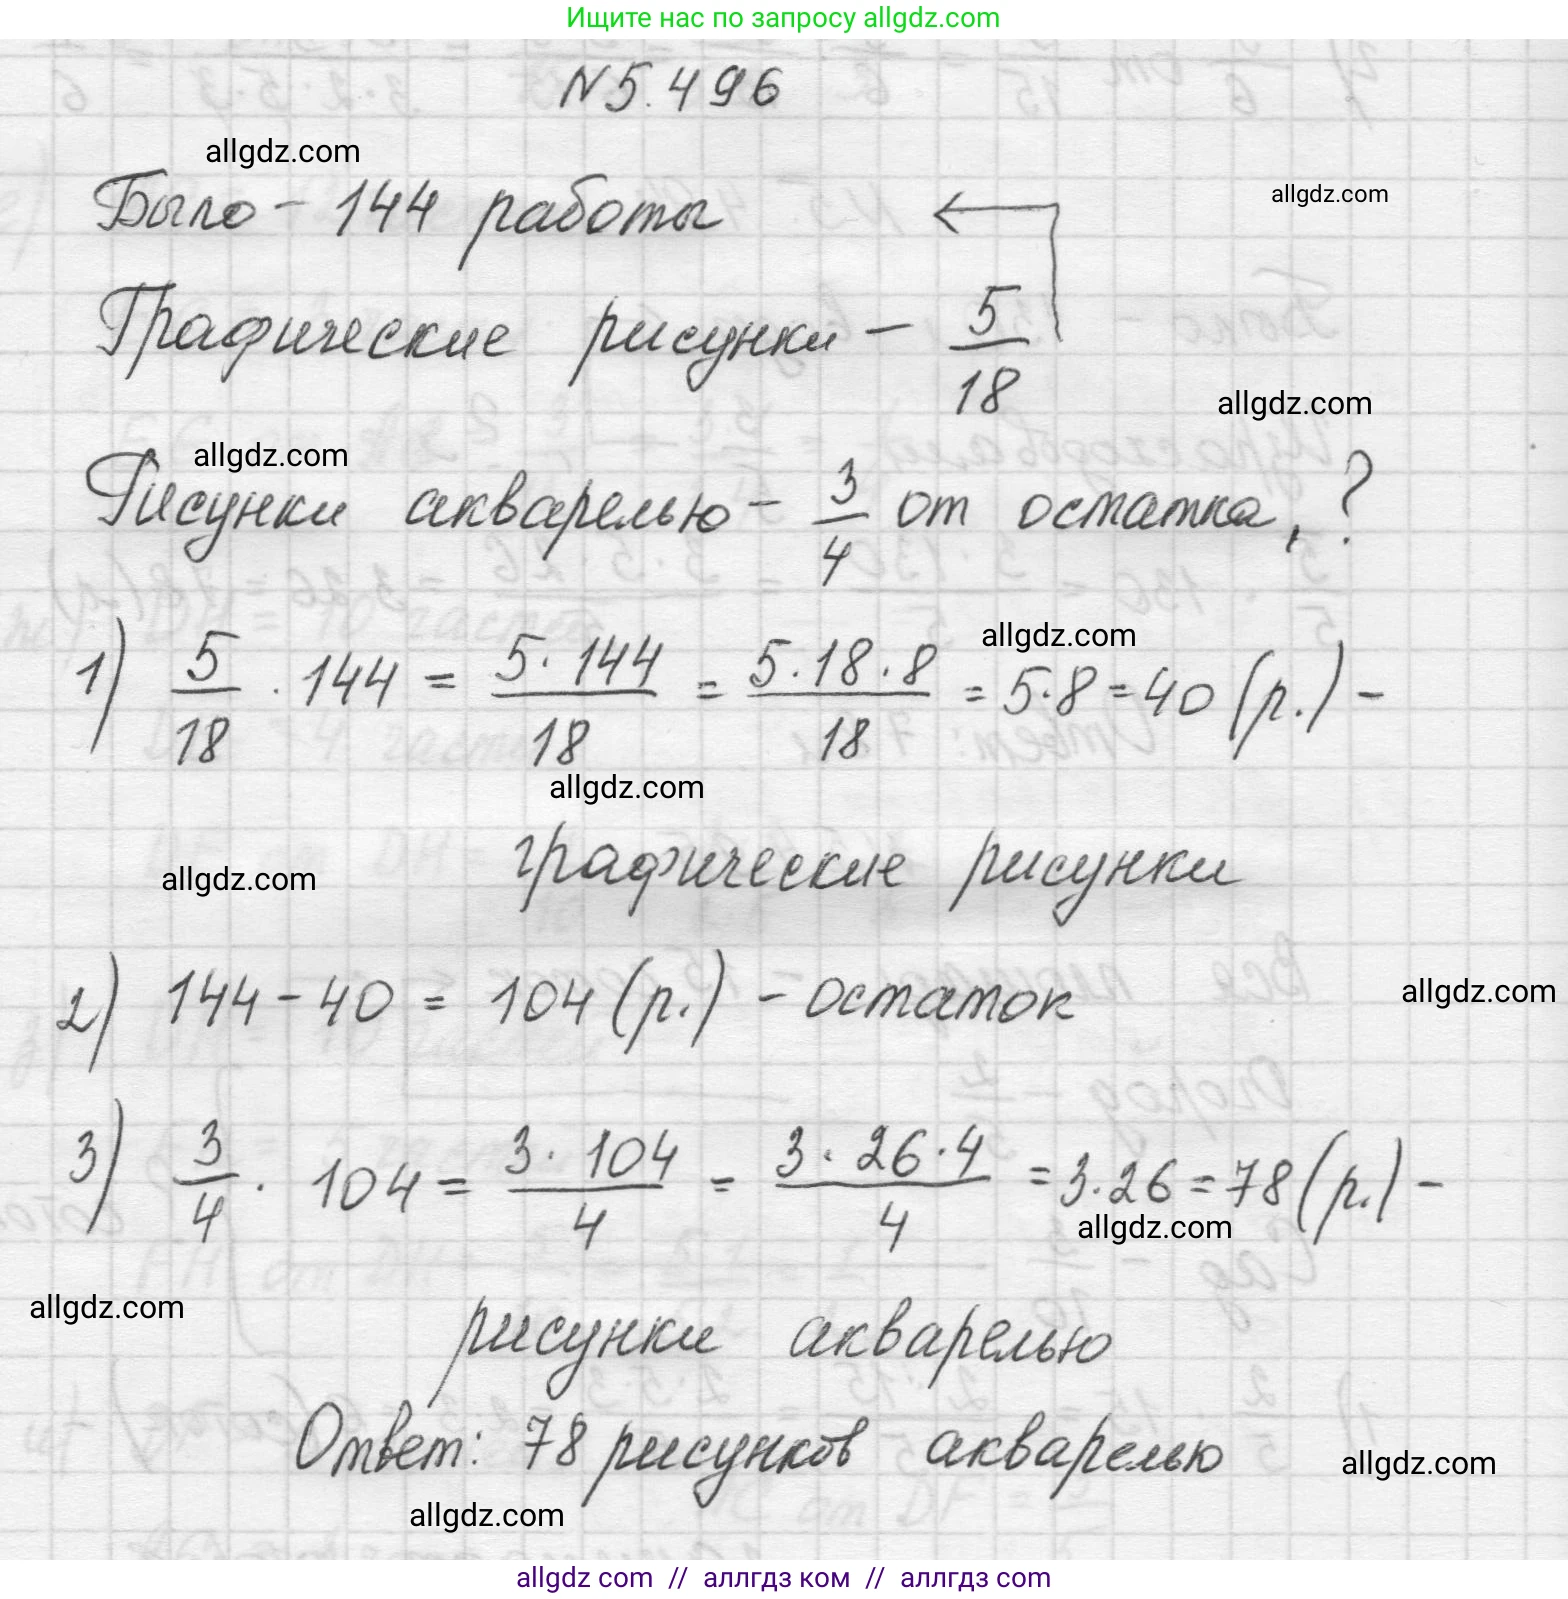 Ищите нас по запросу allgdz.com
N5.496
allgdz.com
allgdz.com
Было - 144 работы
Графические рисунки - 5/18
allgdz.com
allgdz.com
Рисунки акварелью - 3/4 от остатка, ?
allgdz.com
1) 5/18 · 144 = 5·144/18 = 5·18·8/18 = 5·8 = 40 (р.) -
allgdz.com
графические рисунки
allgdz.com
2) 144 - 40 = 104 (р.) - остаток
allgdz.com
3) 3/4 · 104 = 3·104/4 = 3·26·4/4 = 3·26 = 78 (р.) -
allgdz.com
allgdz.com
рисунки акварелью
Ответ: 78 рисунков акварелью
allgdz.com
allgdz.com
allgdz com // аллгдз ком // аллгдз com